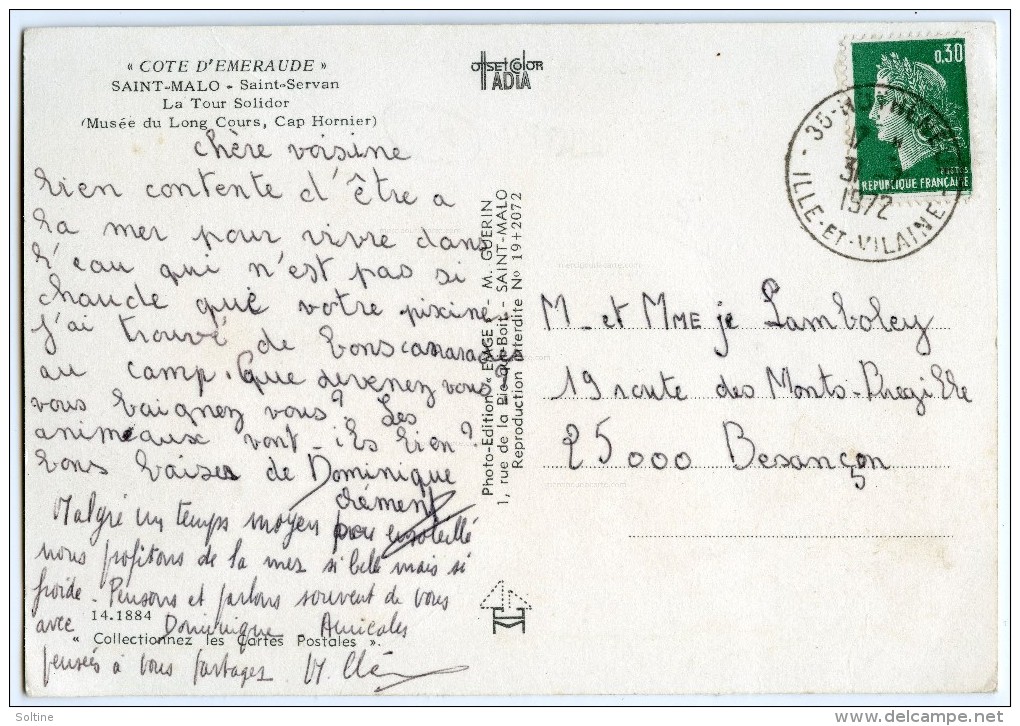 « COTE D'EMERAUDE »
SAINT-MALO - Saint-Servan
La Tour Solidor
(Musée du Long Cours, Cap Hornier)
chère voisine
bien contente d'être a
la mer pour vivre dans
l'eau qui n'est pas si
chaude que votre piscine
j'ai trouvé de bons camarades
au camp. Que devenez vous
vous baignez vous? Les
animeaux vont-ils bien?
bons baisers de Dominique
clément
Malgré un temps moyen peu ensoleillé
nous profitons de la mer si belle mais si
froide. Pensons et parlons souvent de vous
avec Dominique Amicales
pensées à vous partager. M. Clé
14.1884
« Collectionnez les Cartes Postales »
OFFSET COLOR
IADIA
Photo-Edition « EMGE » - M. GUERIN
1, rue de la Pie-qui-Boit - SAINT-MALO
Reproduction interdite N° 19+2072
0,30
POSTES
REPUBLIQUE FRANÇAISE
35
1972
ILLE-ET-VILAINE
M. et MME je Lamboley
19 route des Monts-Bregille
25000 Besançon
Soltine
delcampe.net